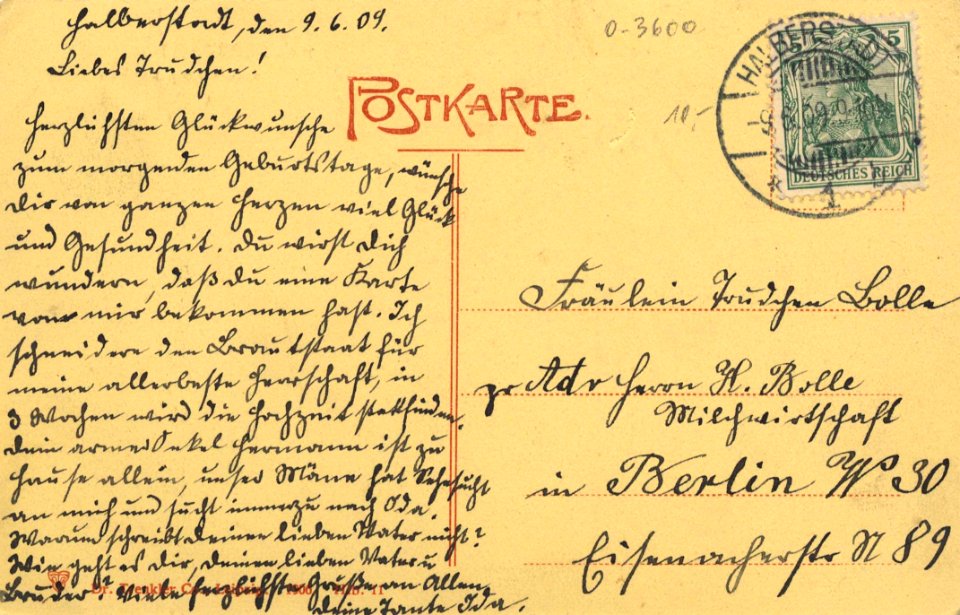 Halberstadt, den 9. 6. 09.
Liebes Trudchen!
Herzlichsten Glückwunsche
zum morgenden Geburtstage, wünsche
Dir von ganzen Herzen viel Glück
und Gesundheit. Du wirst Dich
wundern, daß du eine Karte
von mir bekommen hast. Ich
schneidere den Brautstaat für
meine allerbeste Herrschaft, in
3 Wochen wird die Hochzeit stattfinden.
Dein armer Onkel Hermann ist zu
Hause allein, unser Männe hat Sehnsucht
an mich und sucht immerzu nach Ida.
Warum schreibt deinen lieben Vater nicht?
Wie geht es dir, deinen lieben Vater u
Bruder? Viele herzlichste Grüße an Allen
Deine Tante Ida.
Dr. Trenkler Co., Leipzig. 1906
11
POSTKARTE.
0-3600
10,-
HALBERSTADT
1
5 5
DEUTSCHES REICH
Fräulein Trudchen Bolle
pr Adr Herrn H. Bolle
Milchwirtschaft
in Berlin W 30
Eisenacherstr N 89